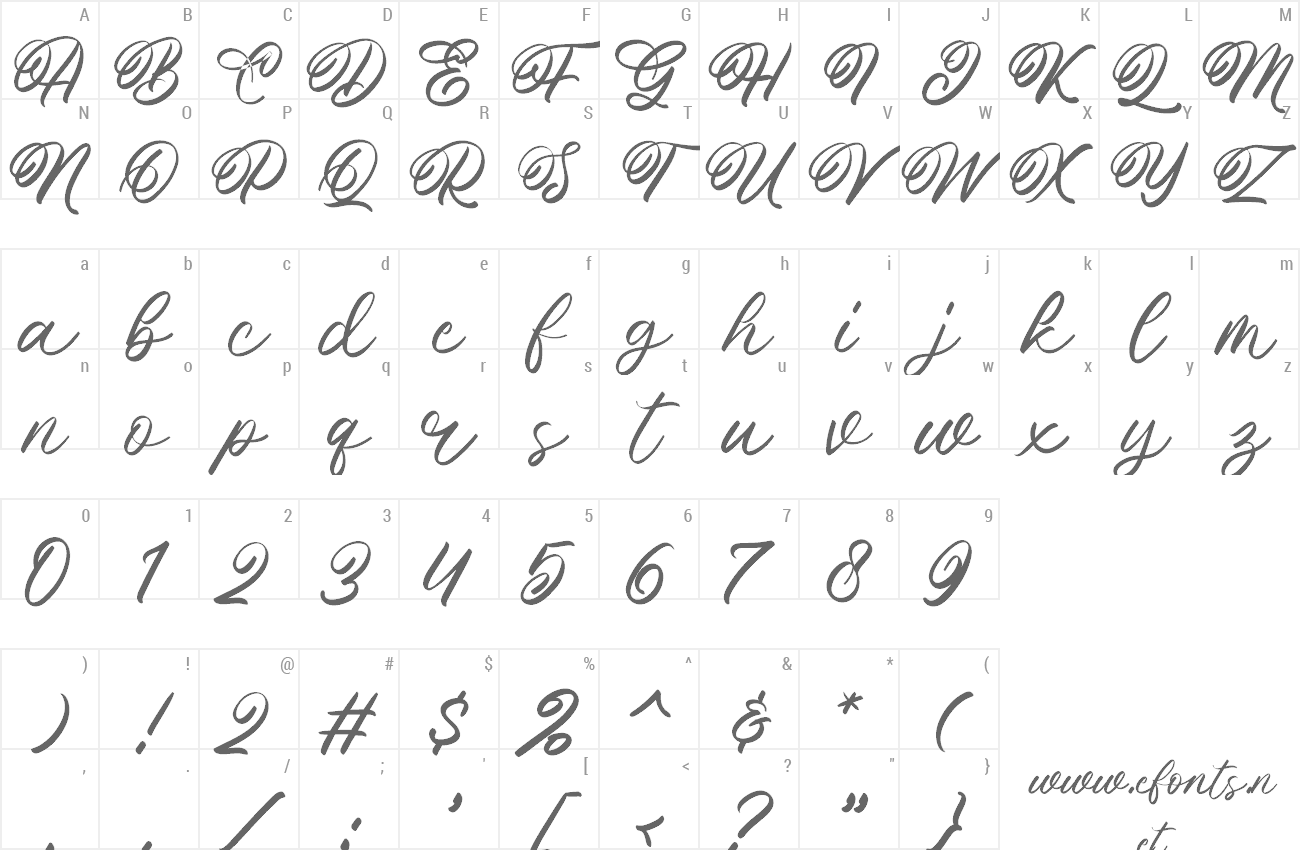 A B C D E F G H I J K L M
A B C D E F G H I J K L M
N O P Q R S T U V W X Y Z
N O P Q R S T U V W X Y Z
a b c d e f g h i j k l m
a b c d e f g h i j k l m
n o p q r s t u v w x y z
n o p q r s t u v w x y z
0 1 2 3 4 5 6 7 8 9
0 1 2 3 4 5 6 7 8 9
) ! @ # $ % ^ & * (
) ! 2 # $ % ^ & * (
, . / ; ' [ < ? " }
, . / ; ' [ < ? " }
www.cfonts.n
et